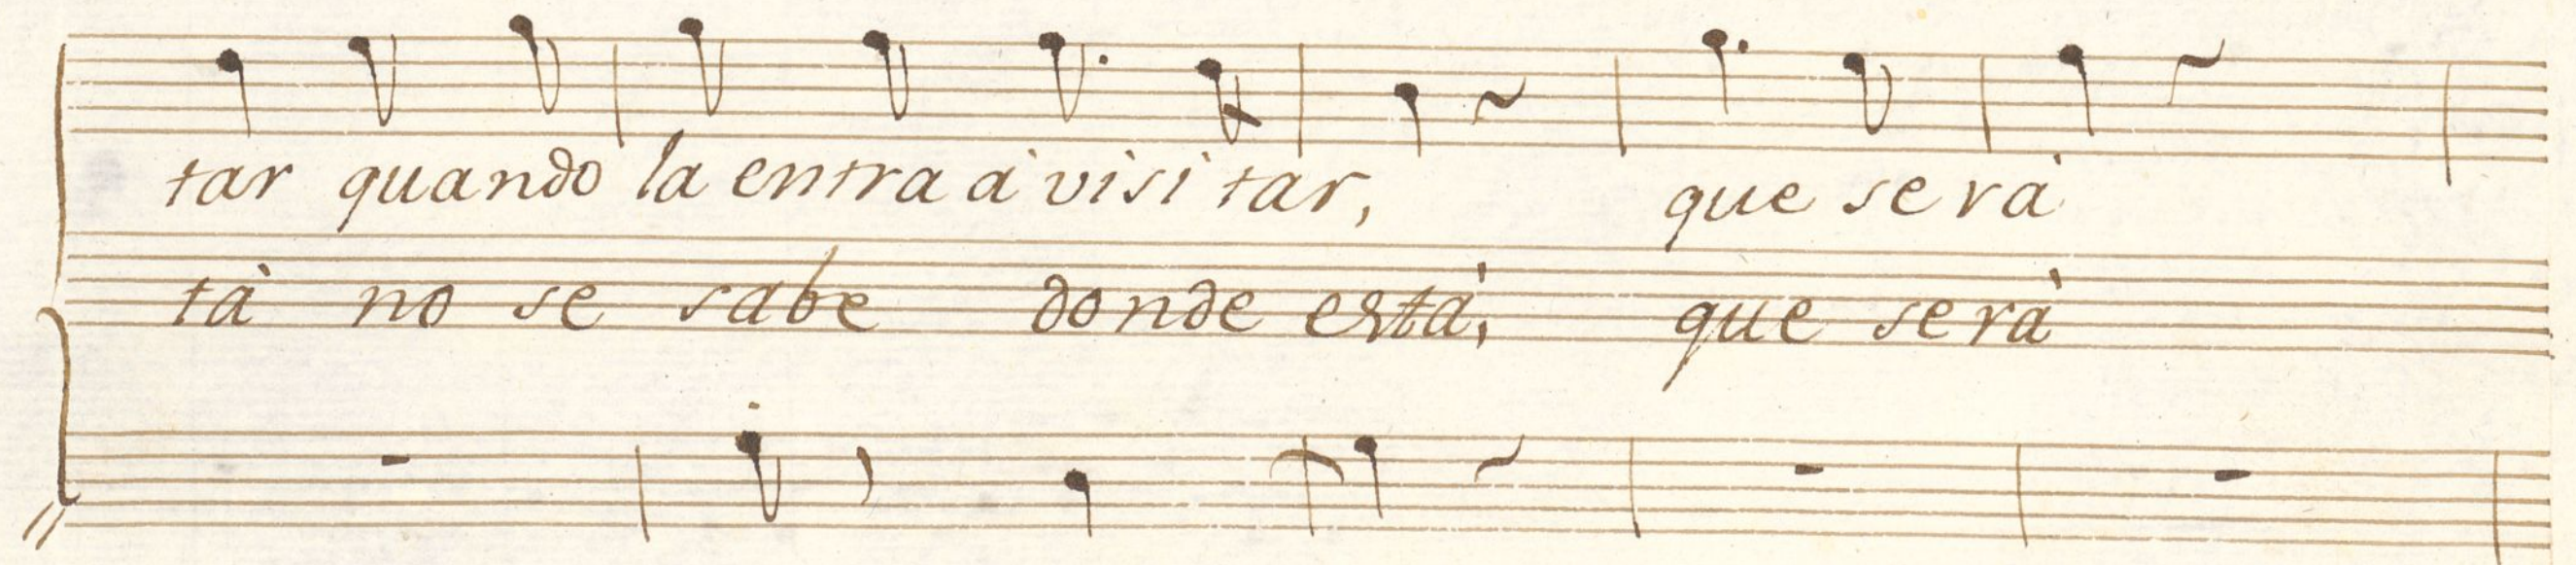 tar quando la entra à visitar, que serà
tà no se sabe donde està, que serà